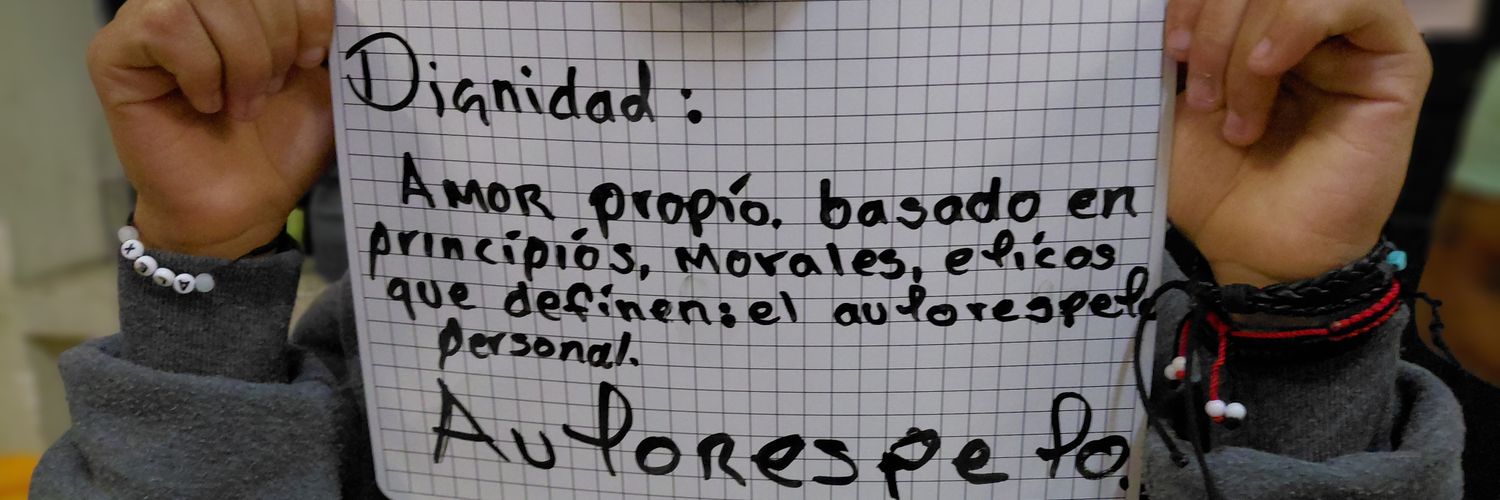 Dignidad:
AMOR propío. basado en
príncípíos, Morales, eticos
que defínen: el autorespeto
personal.
AutoRespeto.